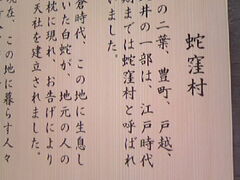 蛇窪村
の二葉、豊町、戸越、
井の一部は、江戸時代
期までは蛇窪村と呼ばれ
いました。
倉時代、この地に生息し
いた白蛇が、地元の人の
枕に現れ、お告げにより
天社を建立されました。
現在、この地に暮らす人々